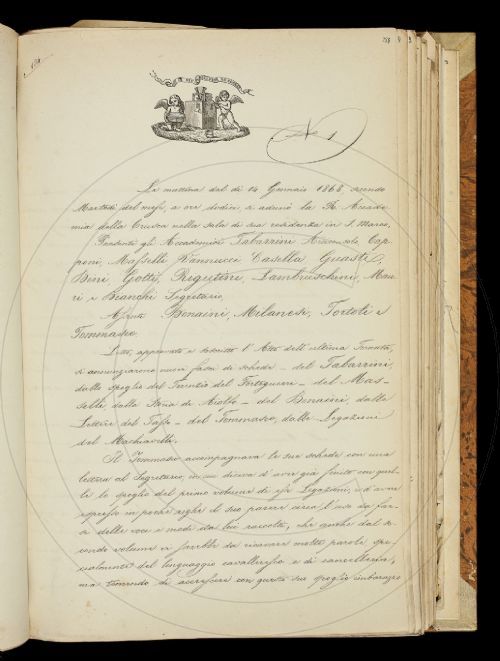 N. 1
La mattina del dì 14 Gennaio 1868, secondo
Martedì del mese, a ore dodici si adunò la R. Accade
mia della Crusca nella sala di sua residenza in S. Marco,
Presenti gli Accademici Tabarrini Arciconsolo, Cap
poni, Maffei, Vannucci Casella, Guasti,
Bini, Gotti, Rigutini, Lambruschini, Mau
ri e Bianchi Segretario,
Assenti Bonaini, Milanesi, Tortoli e
Tommaseo.
Letto, approvato e soscritto l'Atto dell'ultima Tornata,
si annunziarono nuovi fasci di schede - del Tabarrini,
dallo spoglio del Terenzio del Fortiguerri - del Mas-
selli, dalla Storia di Aiolfo - del Bonaini, dalle
Lettere del Tasso - del Tommaseo, dalle Legazioni
del Machiavelli.
Il Tommaseo accompagnava le sue schede con una
lettera al Segretario, in cui diceva d'aver già finito con quel-
le lo spoglio del primo volume di esse Legazioni, e d'avere
espresso in poche righe il suo parere circa l'uso da far-
si delle voci e modi da lui raccolti, che anche dal se-
condo volume ci sarebbe da ricavare molte parole spe-
cialmente del linguaggio cavalleresco e di cancelleria,
ma temendo di accrescere con questo suo spoglio imbarazzo